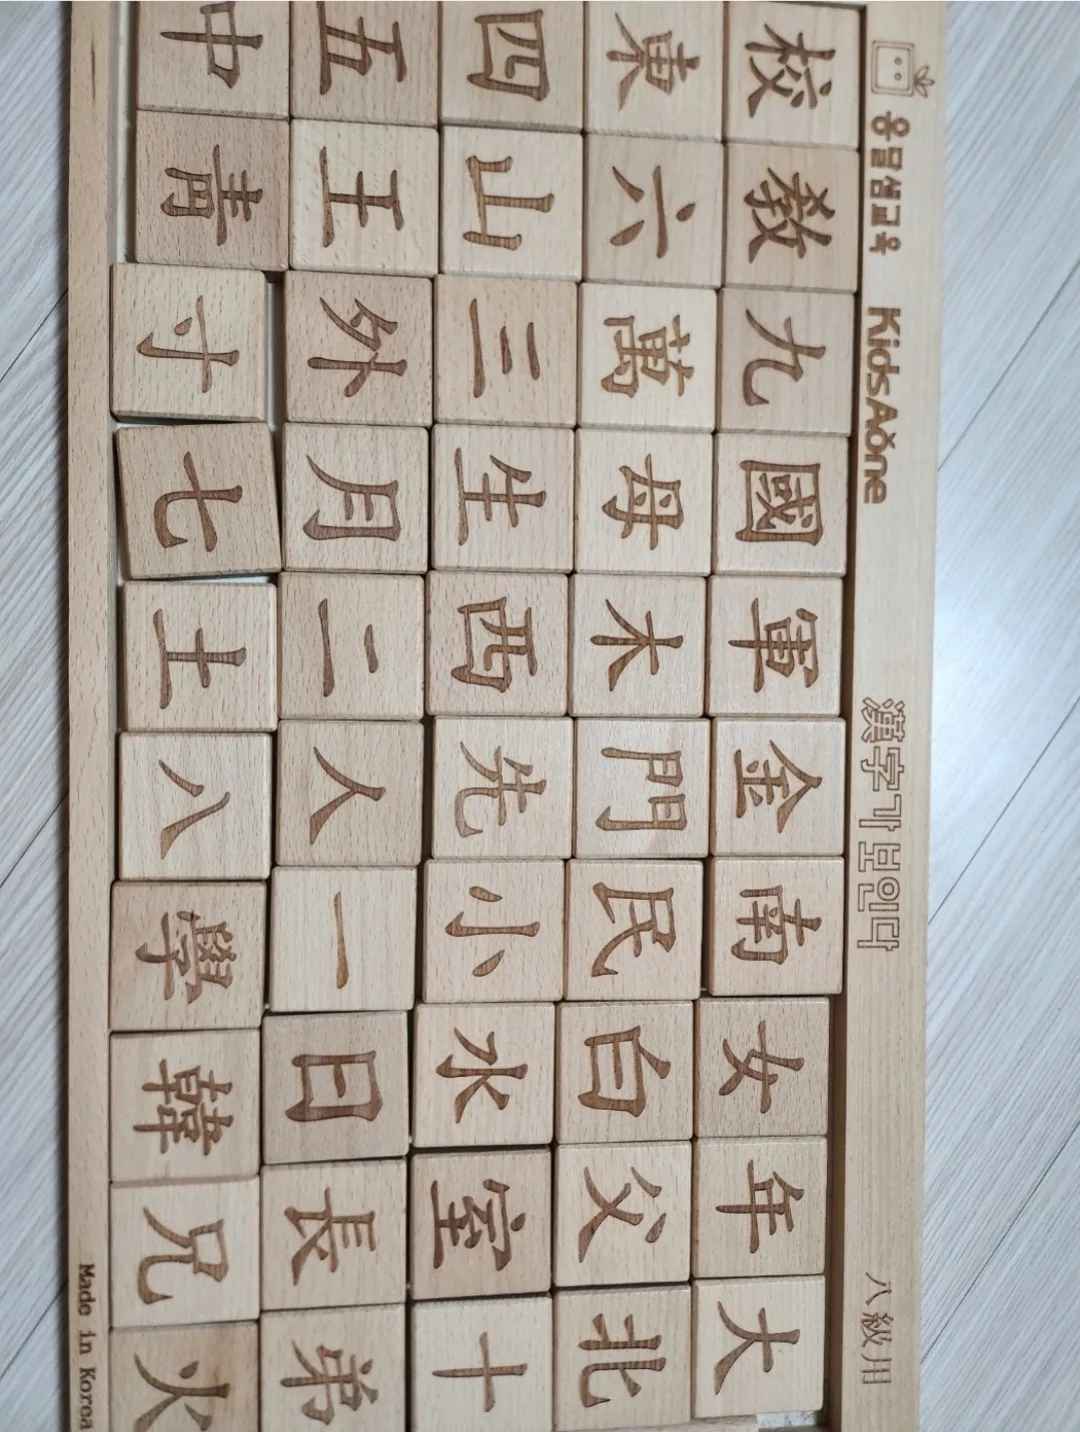 옹달샘교육 KidsAŏne 漢字가 보인다 八級用
校 敎 九 國 軍 金 南 女 年 大
東 六 萬 母 木 門 民 白 父 北
四 山 三 生 西 先 小 水 室 十
五 王 外 月 二 人 一 日 長 弟
中 靑 寸 七 土 八 學 韓 兄 火
Made in Korea